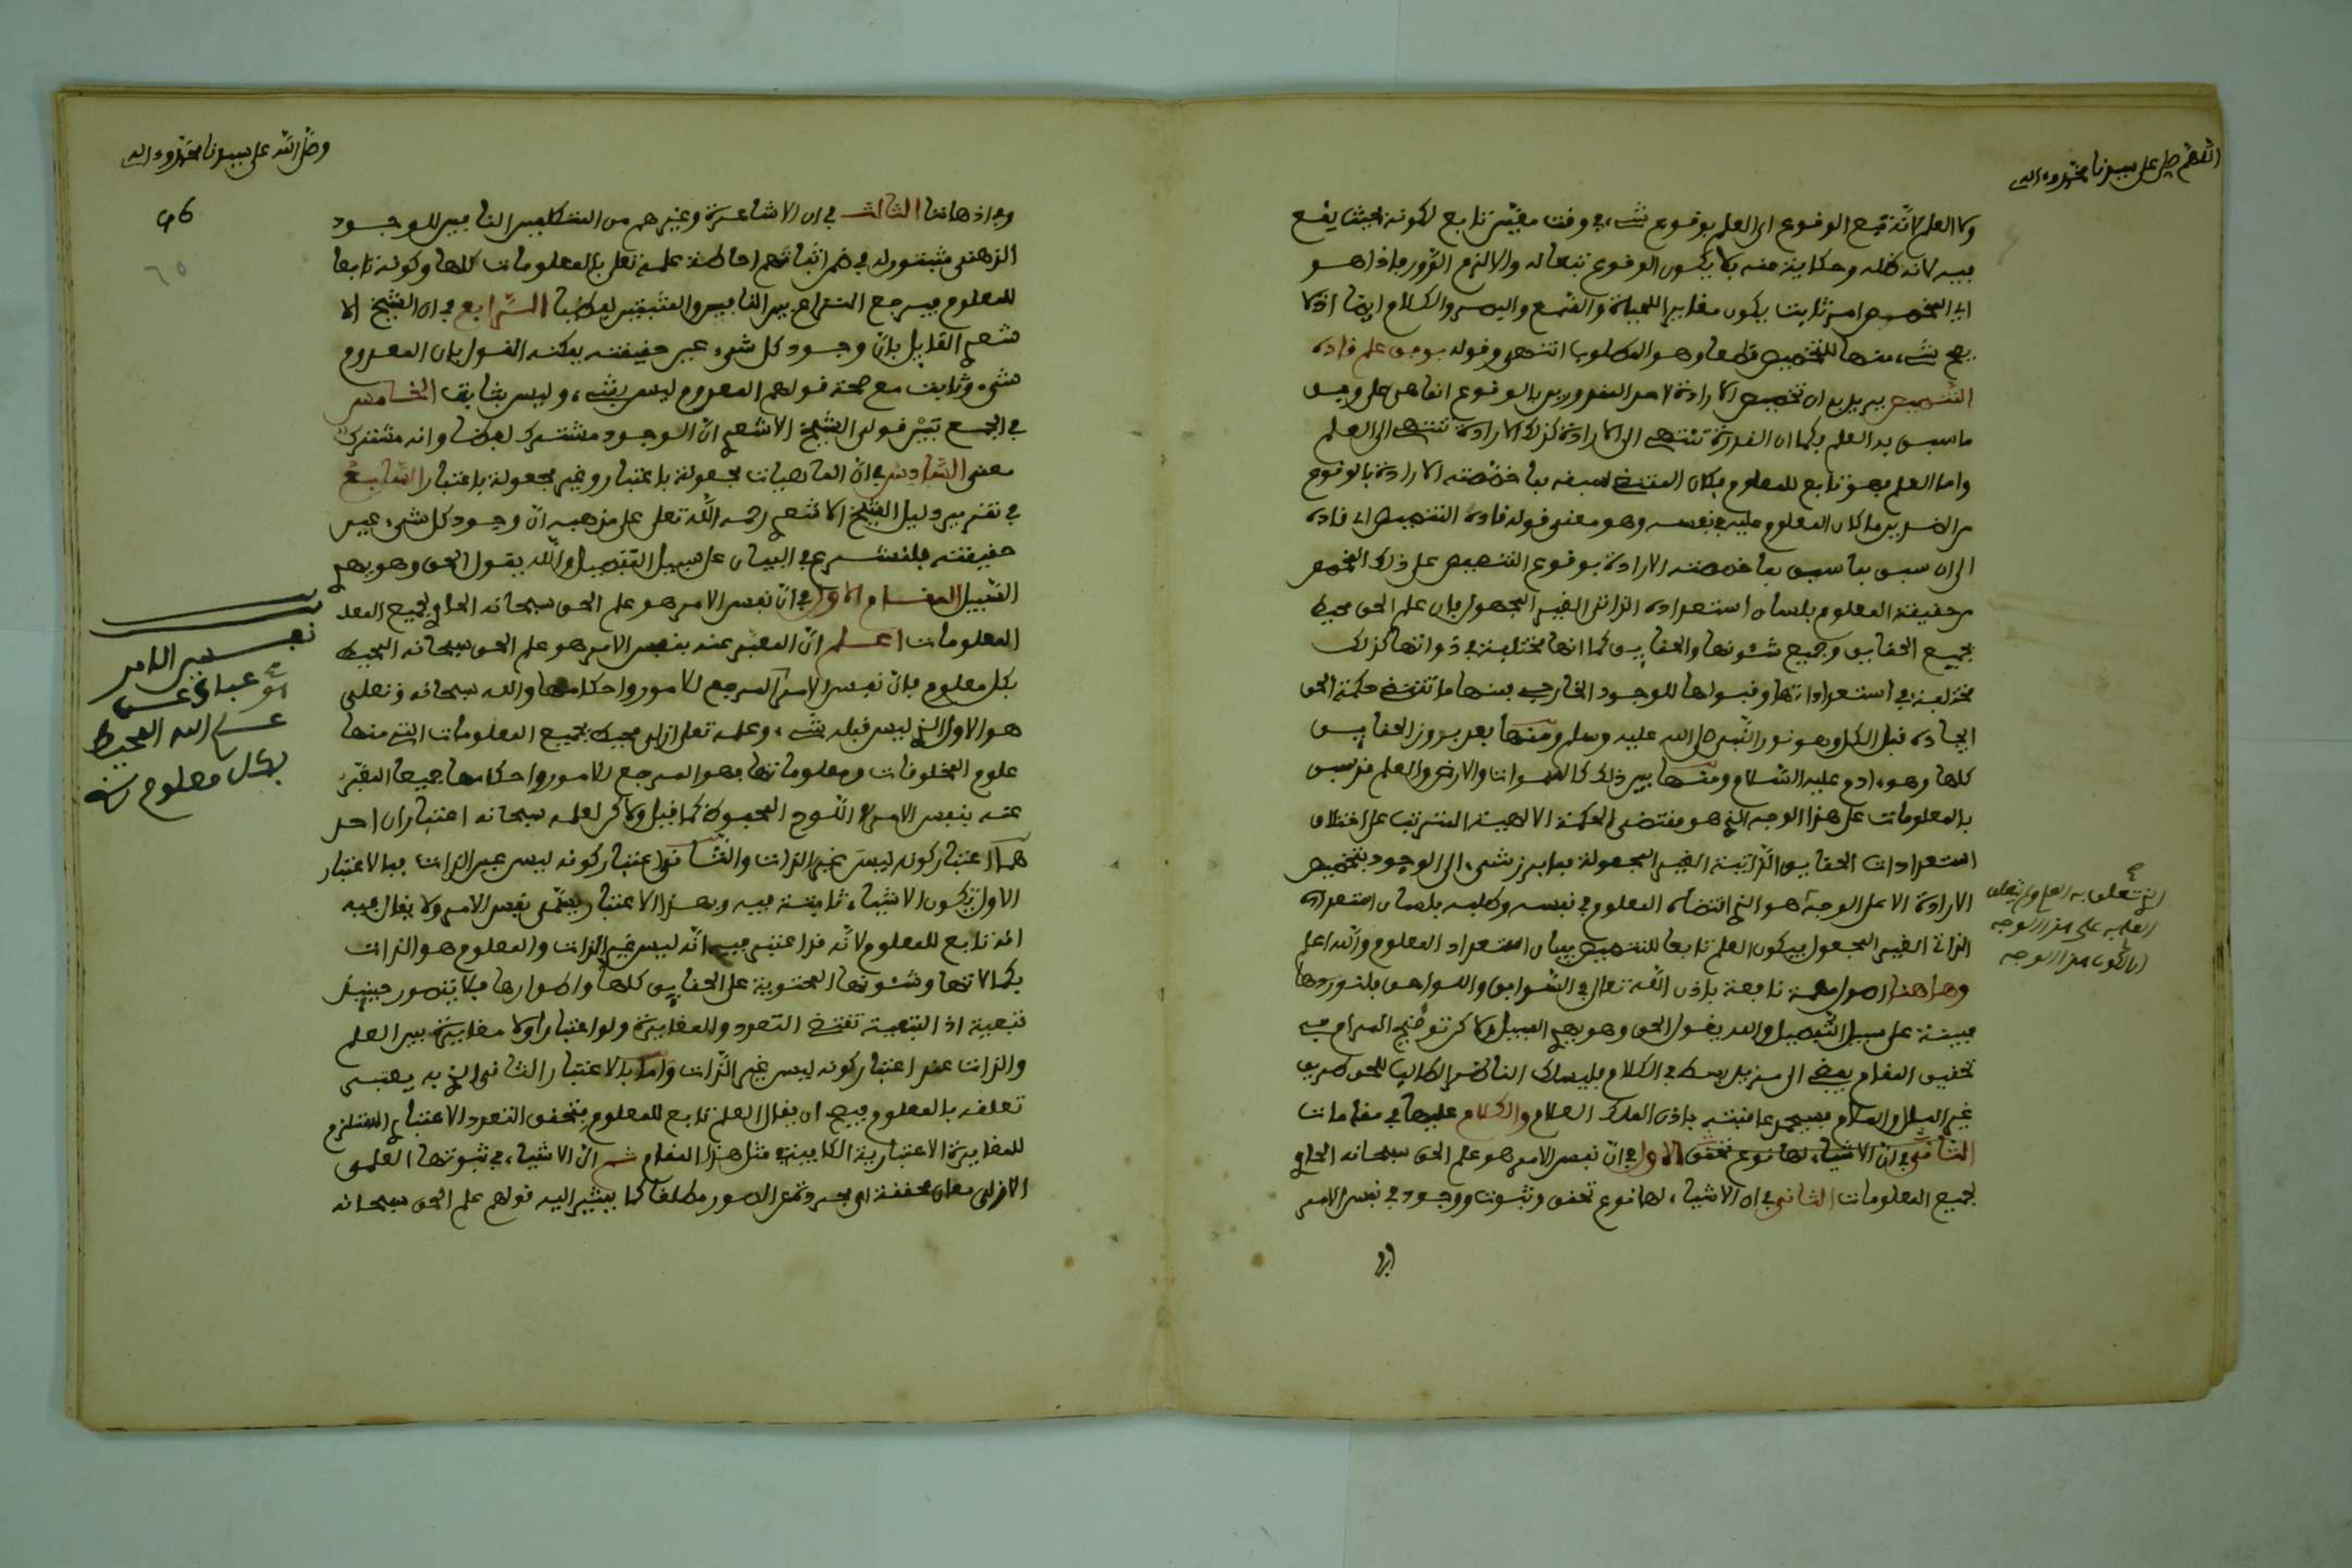 اللهم صل على سيدنا محمد وءاله
ولا العلم لانه تبع الوقوع اى العلم بوقوع شىء في وقت معين تابع لكونه بحيث يقع
فيه لانه ظله وحكاية عنه فلا يكون الوقوع تبعا له والا لزم الدور فاذا هو
اى المخصص امر ثابت يكون مغايرا للحياة والسمع والبصر والكلام ايضا اذ لا
يصح شىء منها للتخصيص قطعا وهو المطلوب انتهى وقوله بوفق علم قاده
التخصيص يريد به ان تخصيص الارادة لاحد المقدورين بالوقوع انما هى على وجه
ما سبق به العلم فكما ان القدرة تنتهى الى الارادة كذلك الارادة تنتهى الى العلم
واما العلم فهو تابع للمعلوم فكان المقتضى لسبقه بما خصصته الارادة بالوقوع
من الضدين ما كان المعلوم عليه في نفسه وهو معنى قوله قاده التخصيص اى قاده
الى ان سبق بما سبق بما خصصته الارادة بوقوع التخصيص على ذلك المخصص
من حقيقة المعلوم بلسان استعداده الذاتى الغير المجعول فان علم الحق محيط
بجميع الحقايق وجميع شئونها والحقايق كما انها مختلفة في ذواتها كذلك
مختلفة في استعداداتها وقبولها للوجود الخارجى فمنها ما تقتضى حكمة الحق
ايجاده قبل الكل وهو نور النبى صلى الله عليه وسلم ومنها بعد بروز الحقايق
كلها وهو ءادم عليه السلام ومنها بين ذلك كالسموات والارض والعلم قد سبق
بالمعلومات على هذا الوجه الذي هو مقتضى الحكمة الالهية المترتب على اختلاف
استعدادات الحقايق الذاتية الغير المجعولة فما برز شىء الى الوجود بتخصيص
الارادة الا على الوجه الذي هو اقتضاه المعلوم في نفسه وطلبه بلسان استعداده
الذاتى الغير المجعول فيكون العلم تابعا للتخصيص بيان استعداد المعلوم والله اعلم
وها هنا اصول مهمة نافعة باذن الله تعالى في السوابق واللواحق فلنوردها
مبينة على سبيل التفصيل والله يقول الحق وهو يهدى السبيل ولما كر توضيح المرام في
تحقيق المقام يفضى الى مزيد بسط في الكلام فليسلك الناظر الطالب للحق طريق
غير الملل والسلام فسيحمد عاقبته باذن الملك العلام والكلام عليها في مقامات
الاول في ان نفس الامر هو علم الحق سبحانه الحاوى
لجميع المعلومات الثاني في ان الاشياء لها نوع تحقق وثبوت ووجود في نفس الامر
الذي تعلق به العلم ولم يتعلق
العلم به على هذا الوجه
الا لكون هذا الوجه
وصلى الله على سيدنا محمد وءاله
96
٦٥
وفي اذهاننا الثالث في ان الاشاعرة وغيرهم من المتكلمين النافين للوجود
الذهنى مثبتون له في ضمن اثباتهم احاطة علمه تعلى بالمعلومات كلها وكونه تابعا
للمعلوم فيرجع النزاع بين النافين والمثبتين لفظيا الرابع في ان الشيخ الا
شعرى القايل بان وجود كل شىء عين حقيقته يمكنه القول بان المعدوم
شىء وثابت مع صحة قولهم المعدوم ليس بشىء وليس بثابت الخامس
في الجمع بين قولى الشيخ الاشعرى ان الوجود مشترك لفظا وانه مشترك
معنى السادس في ان الماهيات مجعولة باعتبار وغير مجعولة باعتبار السابع
في تقرير دليل الشيخ الاشعرى رحمه الله تعلى على مذهبه ان وجود كل شىء عين
حقيقته فلنشرع في البيان على سبيل التفصيل والله يقول الحق وهو يهدى
السبيل المقام الاول في ان نفس الامر هو علم الحق سبحانه الحاوى لجميع المعلـ
المعلومات اعلم ان المعبر عنه بنفس الامر هو علم الحق سبحانه المحيط
بكل معلوم فان نفس الامر المرجع للامور واحكامها والله سبحانه وتعلى
هو الاول الذي ليس قبله شىء وعلمه تعلى ازلى محيط بجميع المعلومات التى منها
علوم المخلوقات ومعلوماتها فهو المرجع للامور واحكامها جميعا المعبر
عنه بنفس الامر اللوح المحفوظ كما قيل ولاكن لعلمه سبحانه اعتباران احد
هما اعتبار كونه ليس غير الذات والثانى اعتبار كونه ليس عين الذات فبالاعتبار
الاول تكون الاشياء ثابتة فيه وبهذا الاعتبار يسمى نفس الامر ولا يقال فيه
انه تابع للمعلوم لانه قد اعتبر فيه انه ليس غير الذات والمعلوم هو الذات
بكمالاتها وشئونها المحتوية على الحقايق كلها واطوارها فلا يتصور حينيذ
تبعية اذ التبعية تقتضى التعدد والمغايرة ولو اعتبارا ولا مغايرة بين العلم
والذات عند اعتبار كونه ليس غير الذات واما بالاعتبار الثانى الذي به يعتبر
تعلقه بالمعلوم فيصح ان يقال العلم تابع للمعلوم بتحقق التعدد الاعتبارى المستلزم
للمغايرة الاعتبارية الكافية في مثل هذا المقام ثم ان الاشياء في ثبوتها العلمى
الازلى معان محققة اى مجردة عن الصور مطلقا كما يشير اليه قولهم علم الحق سبحانه
نفس الامر
عبارة عن
علم الله المحيط
بكل معلوم